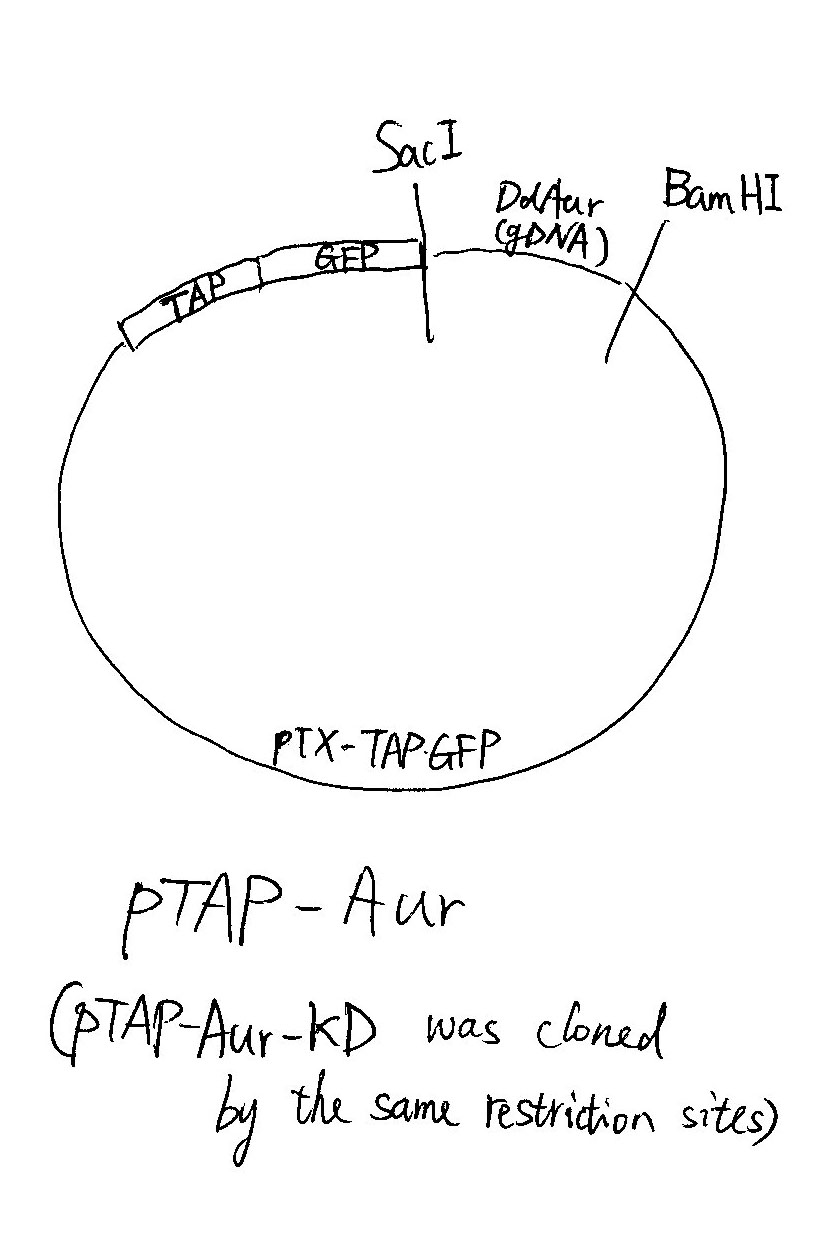 SacI
BamHI
DdAur
(gDNA)
TAP
GFP
PTX-TAP.GFP
pTAP-Aur
(pTAP-Aur-KD was cloned
by the same restriction sites)